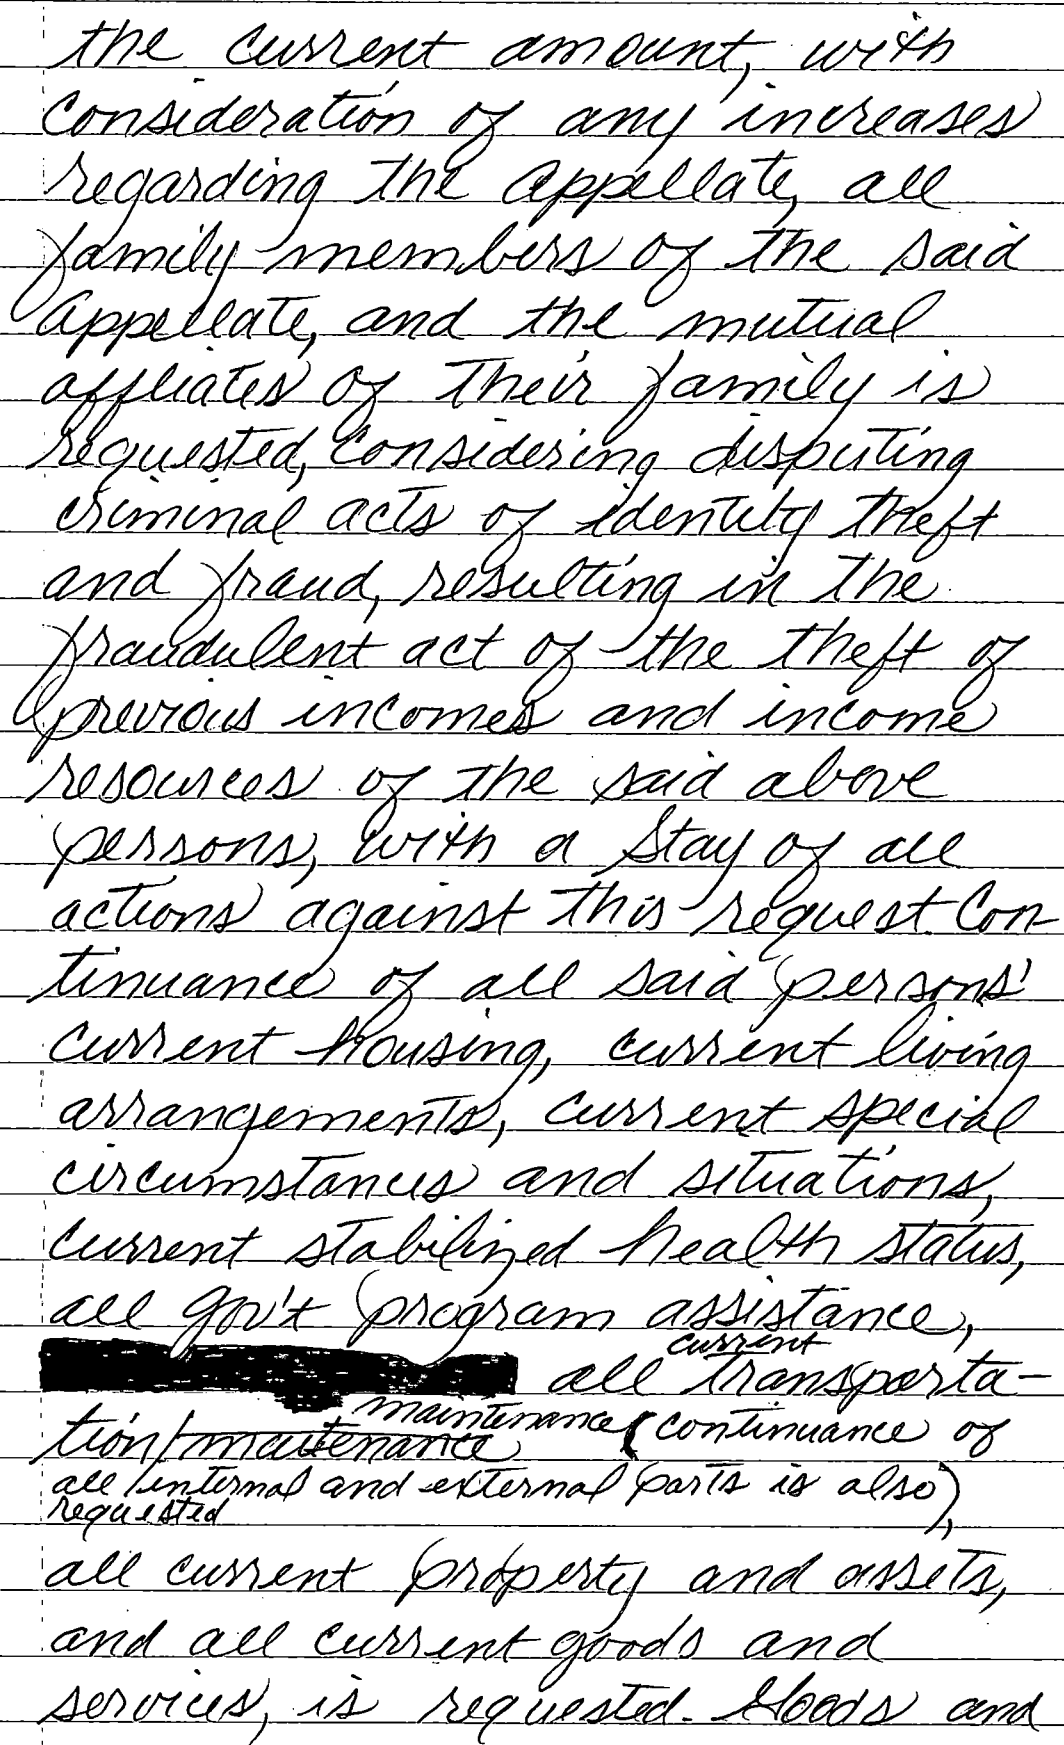 the current amount, with
consideration of any increases
regarding the appellate, all
family members of the said
appellate, and the mutual
affliates of their family is
requested, considering disputing
criminal acts of identity theft
and fraud, resulting in the
fraudulent act of the theft of
previous incomes and income
resources of the said above
persons, with a stay of all
actions against this request. Con-
tinuance of all said persons'
current housing, current living
arrangements, current special
circumstances and situations,
current stabilized health status,
all gov't program assistance,
all current transporta-
tion/maintenance (continuance of
all internal and external parts is also
requested),
all current property and assets,
and all current goods and
services, is requested. Goods and